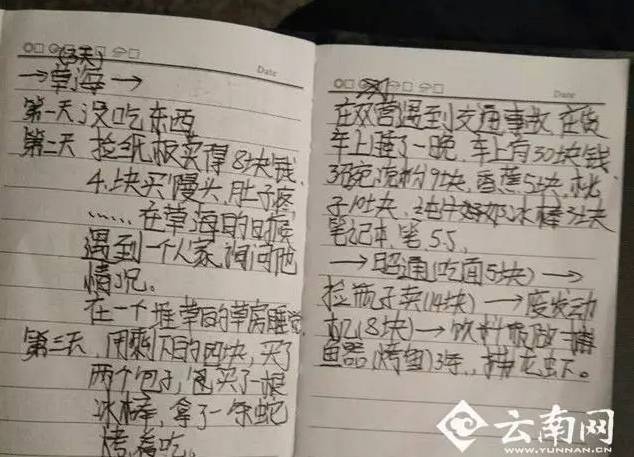 (3天)
Date
→草海→
第一天 没吃东西
第二天 捡纸板卖得8块钱
4块买馒头,肚子疼,
……在草海的时候
遇到一个人家询问他
情况。
在一个堆草的草房睡觉
第三天,用剩下的四块,买了
两个包子,买了一根
冰棒,拿了一条蛇
烤着吃。
Date
在双营遇到交通事故 在货
车上睡了一晚,车上有30块钱,
3碗凉粉9块,香蕉5块,桃
子10块,冰棒3块
笔记本,笔5.5.
→昭通(吃面5块)→
捡瓶子卖(14块)→废发动
机(8块)→饮料瓶做捕
鱼器(烤鱼)3条,
云南网
WWW.YUNNAN.CN